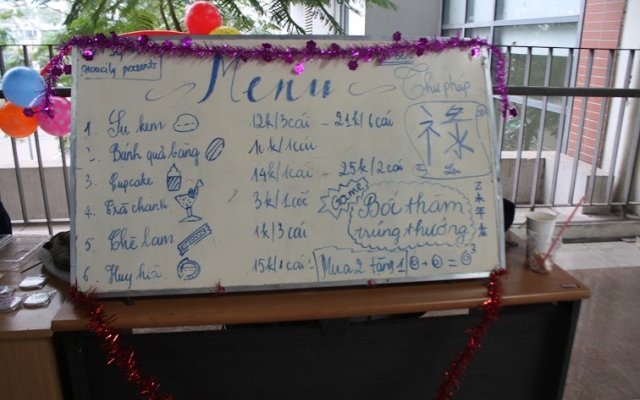 presents
Menu
Thư pháp
1. Su kem 12k/3cái - 21k/6cái
2. Bánh quả bàng 1k/1cái
3. Cupcake 14k/1cái - 25k/2cái
4. Trà chanh 3k/1cốc
5. Chè lam 1k/3cái
6. Huy hiệu 15k/1cái
祿
Lộc
Game
Bốc thăm
trúng thưởng
Mua 2 tặng 1